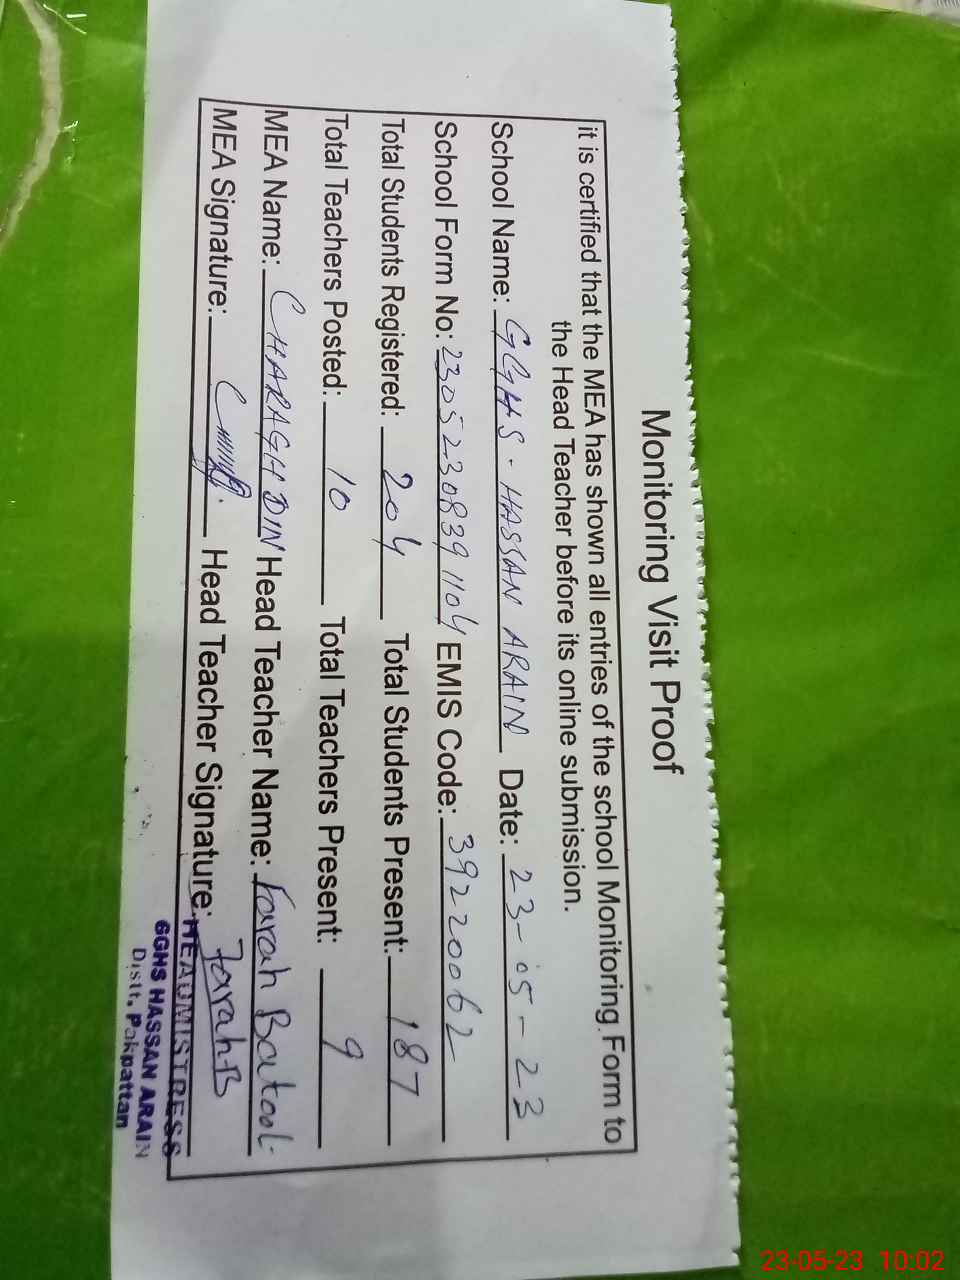 Monitoring Visit Proof
it is certified that the MEA has shown all entries of the school Monitoring Form to
the Head Teacher before its online submission.
School Name: GGHS. HASSAN ARAIN Date: 23-05-23
School Form No: 23052308391104 EMIS Code: 39220062
Total Students Registered: 204 Total Students Present: 187
Total Teachers Posted: 10 Total Teachers Present: 9
MEA Name: CHARAGH DIN Head Teacher Name: Farah Batool.
MEA Signature: Head Teacher Signature: Farah B
HEADMISTRESS
GGHS HASSAN ARAIN
Distt. Pakpattan
23-05-23 10:02